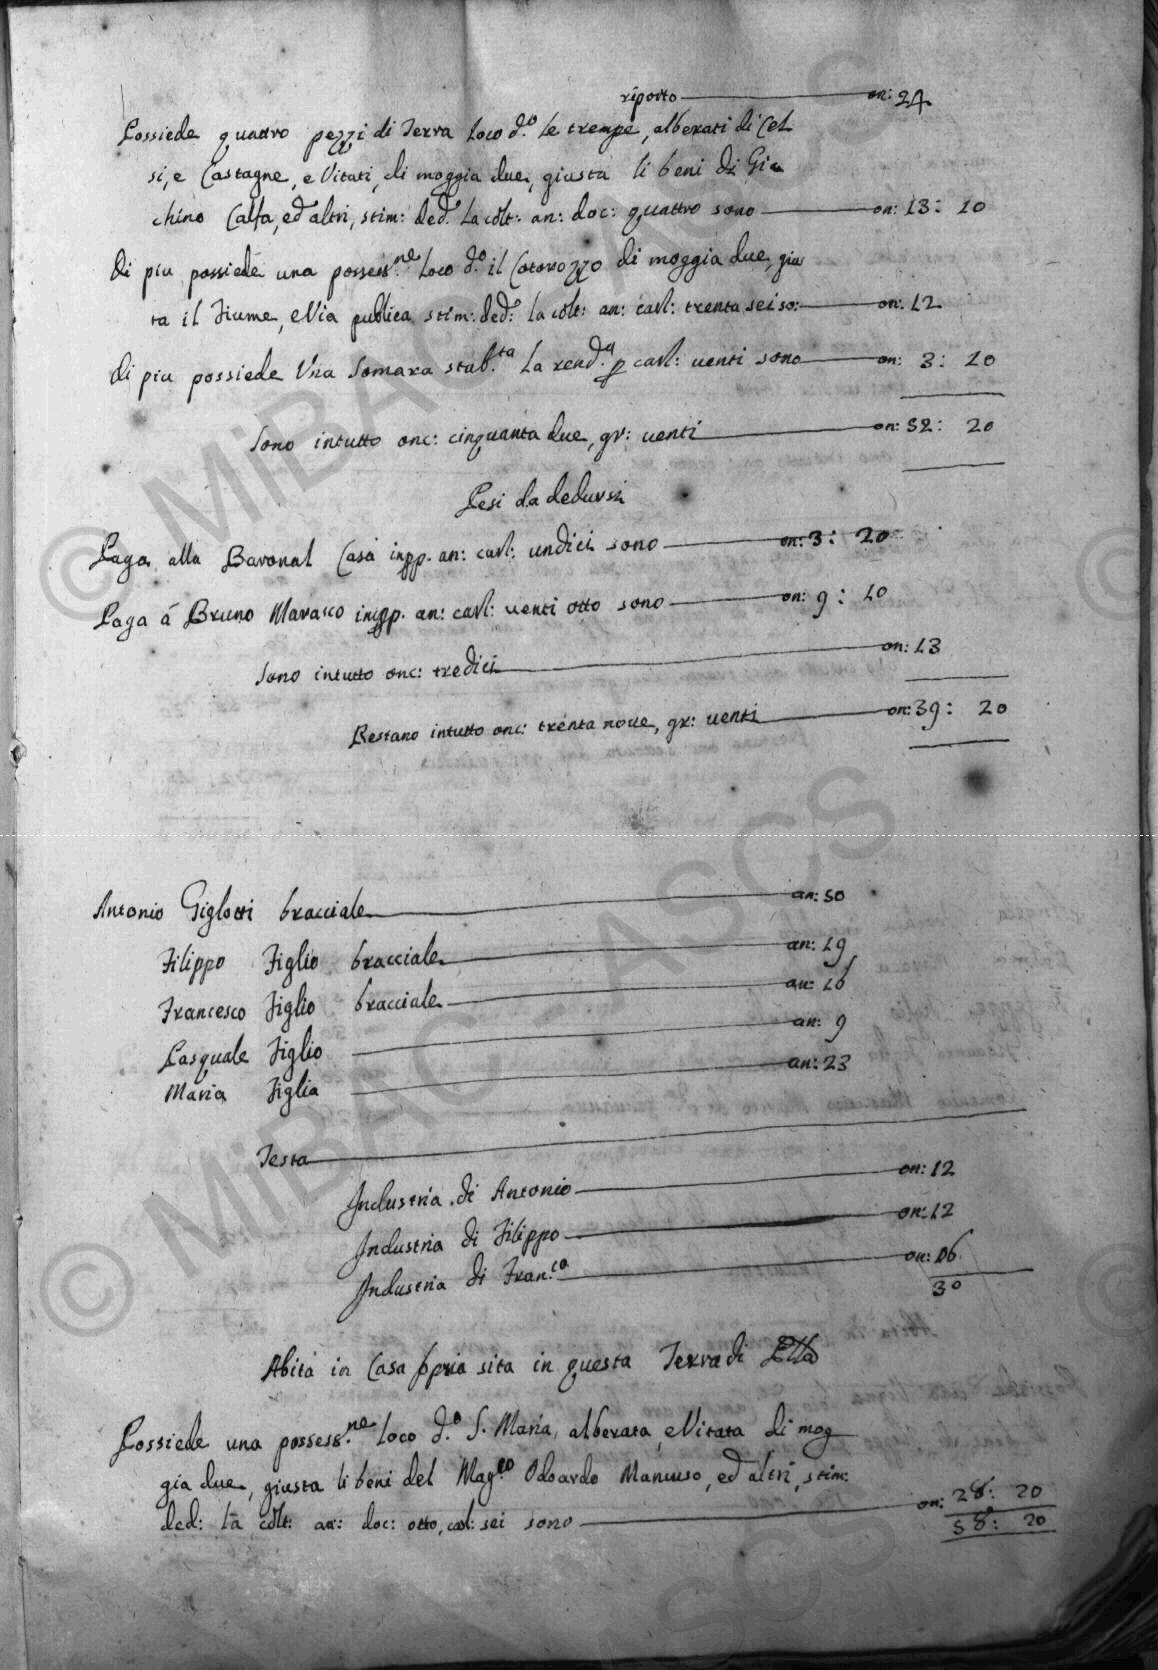 riporto on: 24
Possiede quattro pezzi di Terra loco d.o le trempe, alberati di Cel
si, e Castagne, e Vitati, di moggia due, giusta li beni di Gia
chino Calfa, ed altri, stim: ded.a la colt: an: doc: quattro sono on: 13: 10
Di piu possiede una possess.ne loco d.o il Cotorozzo di moggia due, gius
ta il Fiume, e Via publica stim: ded: la colt: an: carl: trenta sei so: on: 12
Di piu possiede Una Somara stab.ta la rend.a p carl: venti sono on: 3: 10
Sono intutto onc: cinquanta due, gr: venti on: 52: 20
Pesi da dedursi
Paga alla Baronal Casa inpp. an: carl: undici sono on: 3: 20
Paga á Bruno Marasco inpp. an: carl: venti otto sono on: 9: 10
Sono intutto onc: tredici on: 13
Restano intutto onc: trenta nove, gr: venti on: 39: 20
Antonio Giglotti bracciale an: 50
Filippo Figlio bracciale an: 19
Francesco Figlio bracciale an: 16
Pasquale Figlio an: 9
Maria Figlia an: 23
Testa
Industria di Antonio on: 12
Industria di Filippo on: 12
Industria di Fran.co on: 06
30
Abita in Casa ppria sita in questa Terra di
Possiede una possess.ne loco d.o S. Maria, alberata, e Vitata di mog
gia due, giusta li beni del Mag.co Odoardo Mancuso, ed altri, stim:
ded: la colt: an: doc: otto, carl: sei sono on: 28: 20
58: 20
© MiBAC - ASCS
© MiBAC - ASCS